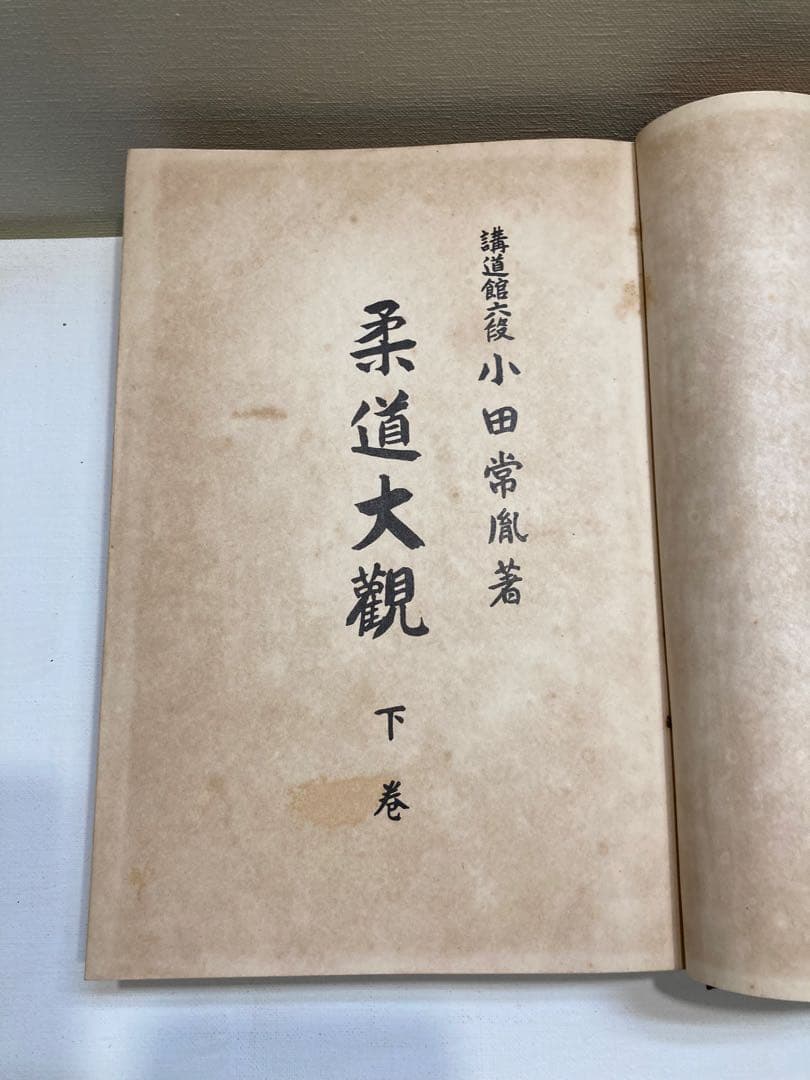 講道館六段 小田常胤著
柔道大觀 下巻